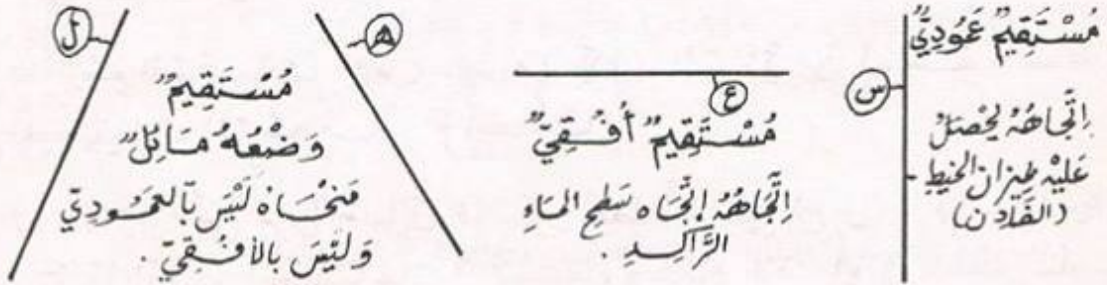 مُسْتَقِيمٌ عَمُودِيٌّ
س
اِتِّجَاهُهُ يُحْصَلُ
عَلَيْهِ بِمِيزَان الخَيْطِ
(الفَادِن)
ع
مُسْتَقِيمٌ أُفُقِيٌّ
اِتِّجَاهُهُ اِتِّجَاه سَطحِ المَاءِ
الرَّاكِدِ .
هـ
ل
مُسْتَقِيمٌ
وَضْعُهُ مَائِلٌ
مَنْحَاهُ لَيْسَ بِالعَمُودِيّ
وَلَيْسَ بِالأُفُقِيّ .